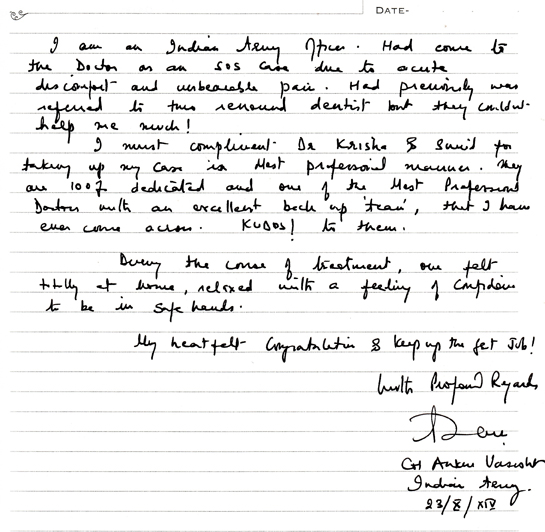 DATE-
I am an Indian Army Officer. Had come to
the Doctor as an SOS case due to acute
discomfort and unbearable pain. Had previously was
referred to two renound dentist but they couldnt
help me much!
I must compliment Dr Krisha & Sunid for
taking up my case in Most professional manner. They
are 100% dedicated and one of the Most Professional
Doctors with an excellent back up 'team', that I have
ever come across. KUDOS! to them.
During the course of treatment, one felt
totally at home, relaxed with a feeling of Confidence
to be in safe hands.
My heartfelt Congratulation & keep up the gt Job!
With Profound Regards
Col Ankur Vasisht
Indian Army.
23/8/XIV